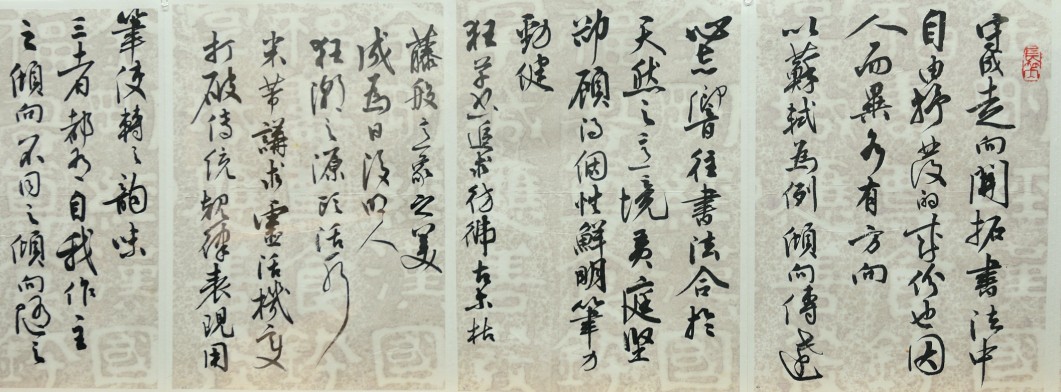 守成走向開拓書法中
自由抒發的成份也因
人而異各有方向
以蘇軾為例傾向傳達
心志嚮往書法合於
天然之意境黃庭堅
卻顧得個性鮮明筆力
勁健
狂草也追求彷彿古木枯
藤般意象之美
成為日後明人
狂潮之源頭活水
米芾講求靈活機變
打破傳統規律表現用
筆使轉之韻味
三者都有自我作主
之傾向不同之傾向隨之